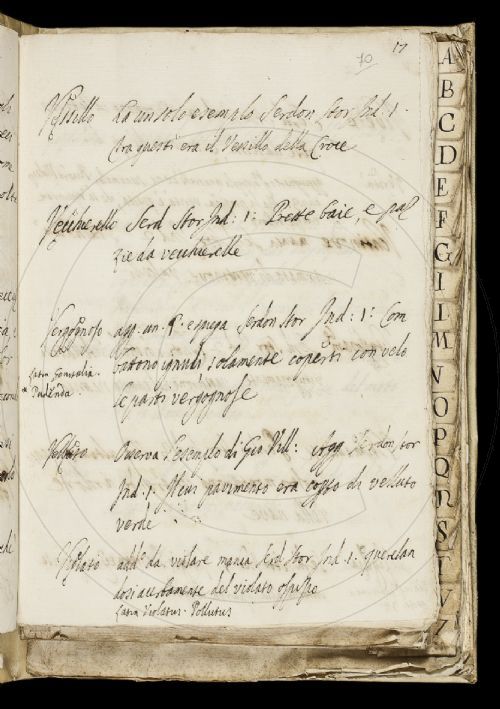 70 17
Vessillo ha un solo esempio Serdon stor Ind. 1.
tra questi era il Vessillo della Croce
Vecchierello Serd stor Ind: 1: Prette baie, e paz
zie da vecchierelle
Vergognoso agg. un. §. e spiega Serdon stor Ind: 1: Com
battono ignudi, solamente coperti con velo
le parti vergognose
latin Genitalia.
* Pudenda.
Velluto Osserva l'esempio di Gio Vill: Agg Serdon stor
Ind. 1. Il suo pavimento era coperto di velluto
verde
Violato add.o da violare manca Serd stor Ind 1: querelan
dosi acerbamente del violato ospizio
latin Violatus. Pollutus
A
B
C
D
E
F
G
I
L
M
N
O
P
Q
R
S
T
V
Z